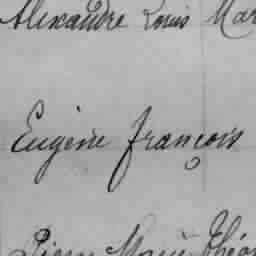 Alexandre Louis Mar
Eugène François
Pierre Marie Théo